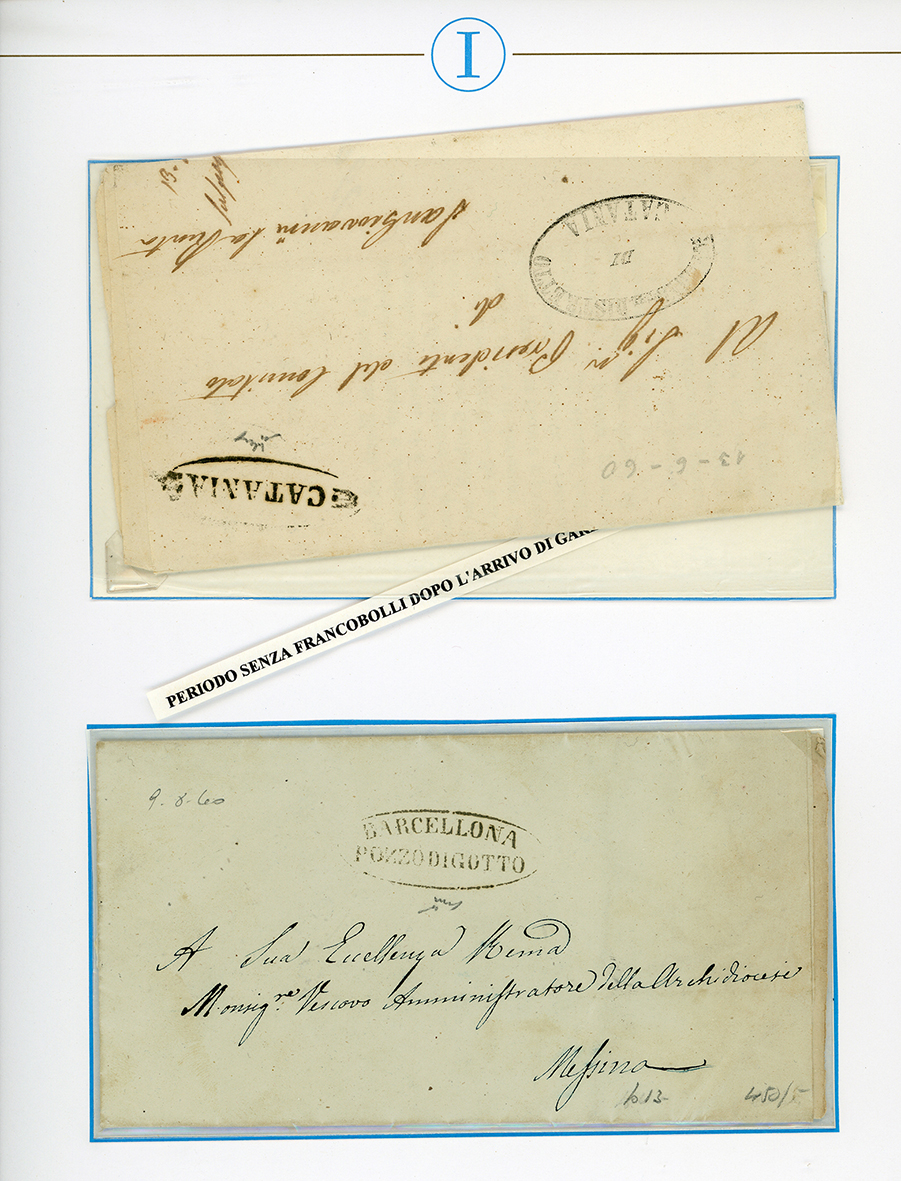 I
Al Sigr. Presidente del Comitato
di
San Giovanni la Punta
13.
DISTRETTO
DI
CATANIA
CATANIA
13-6-60
PERIODO SENZA FRANCOBOLLI DOPO L'ARRIVO DI GAR
9-8-60
BARCELLONA
POZZODIGOTTO
A Sua Eccellenza Rema
Monsigre. Vescovo Amministratore della Archidiocesi
Messina
b 13- 450/5